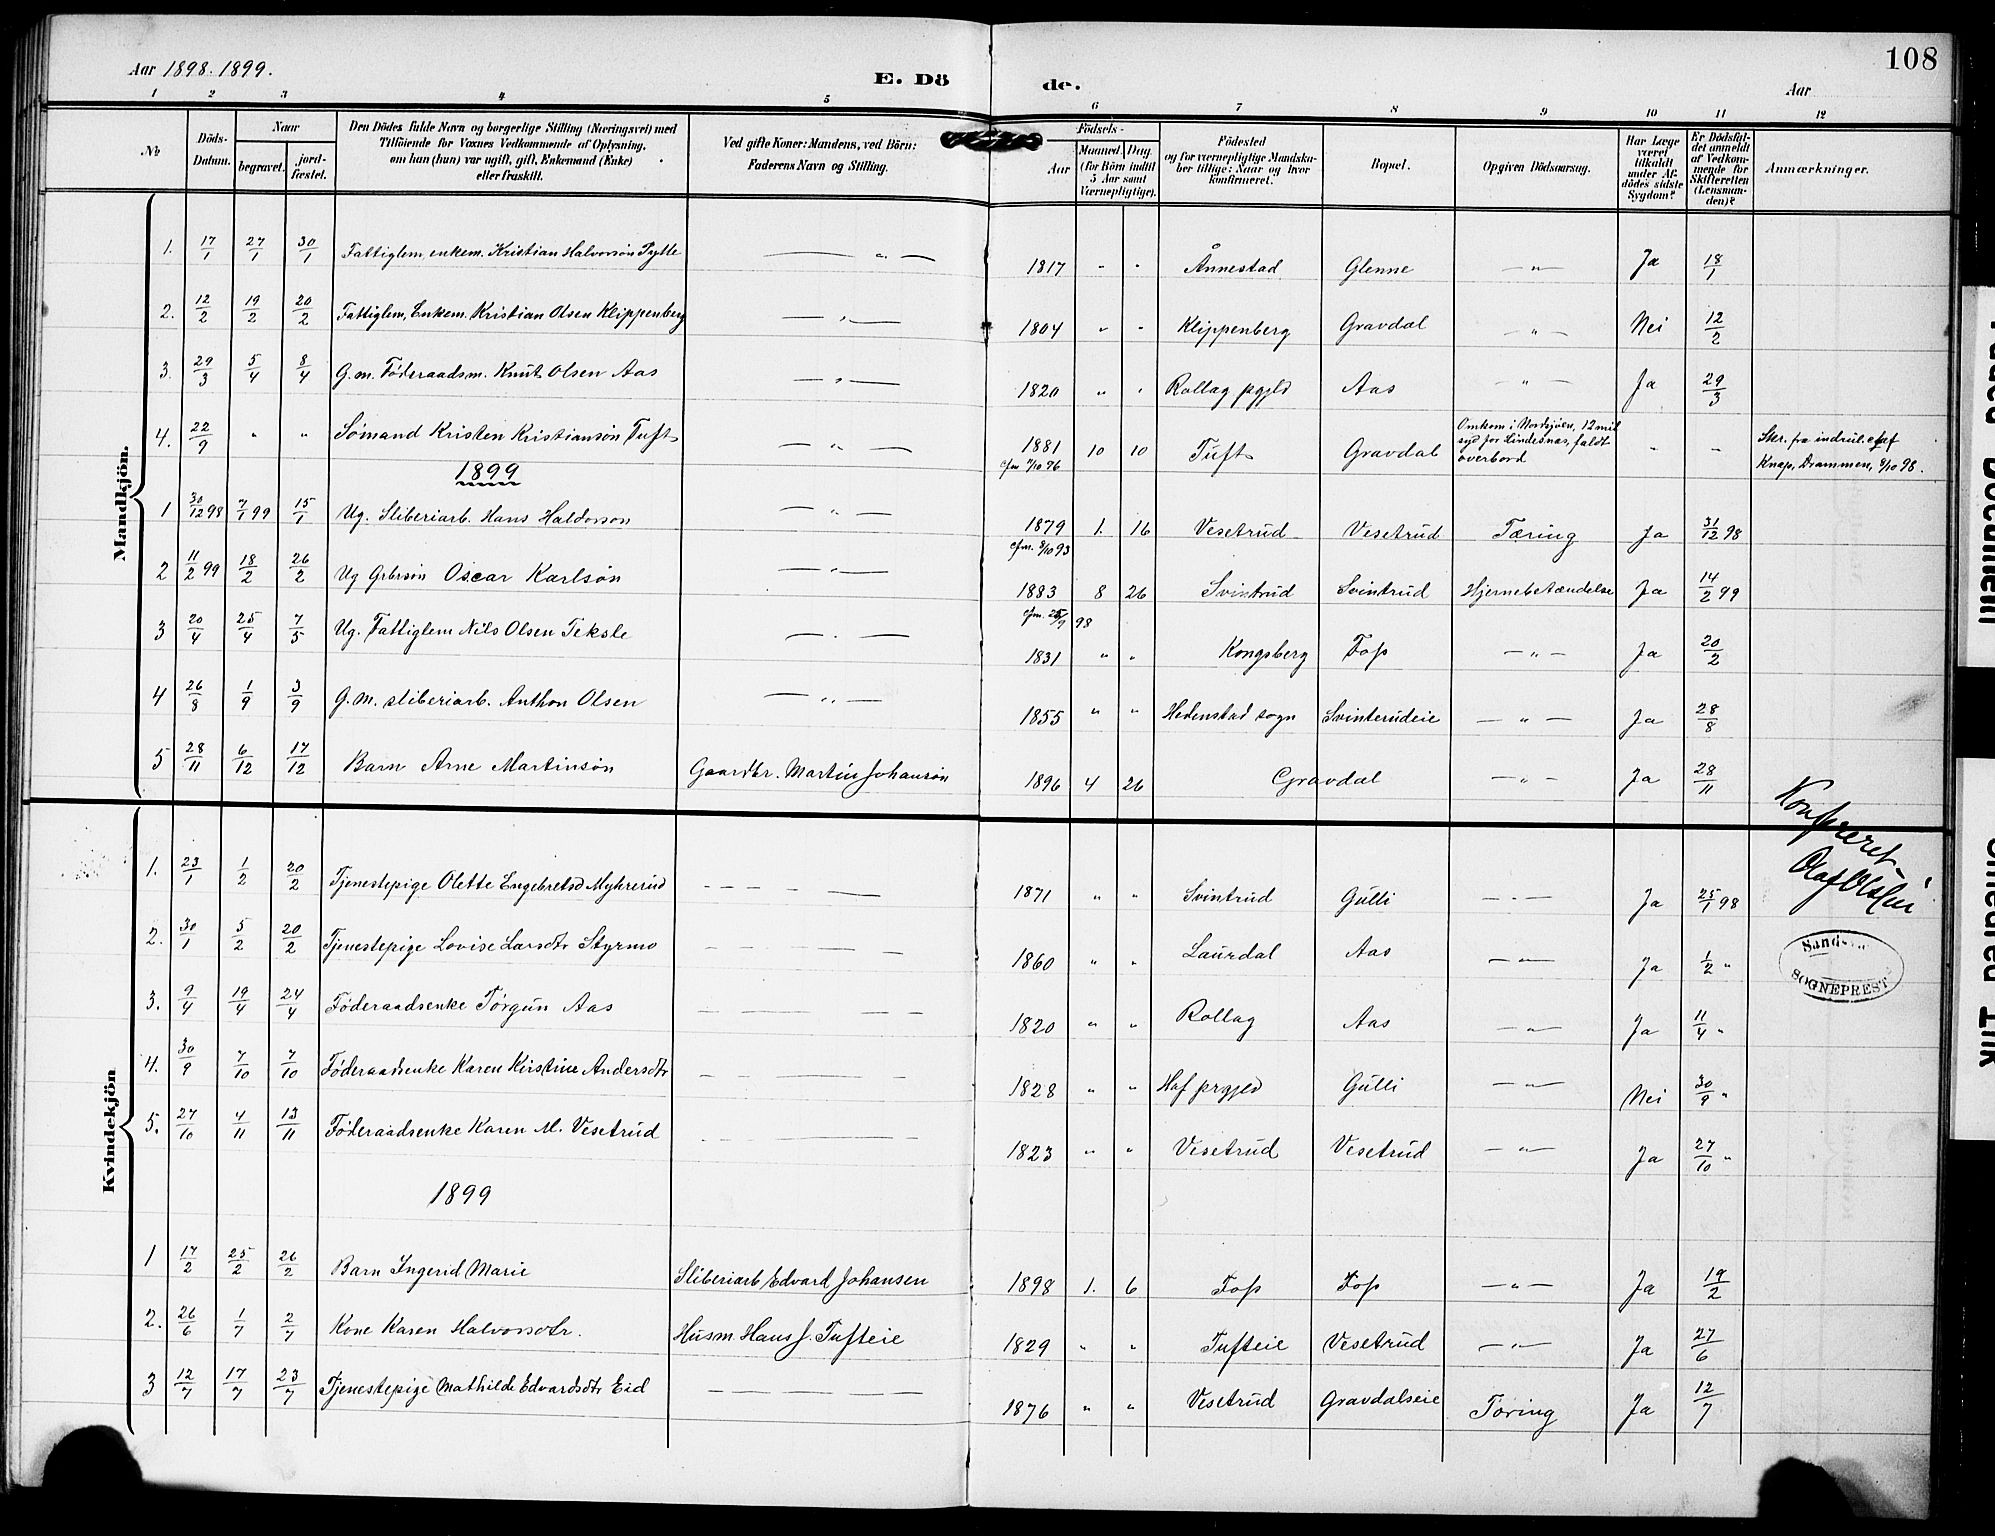 108
Aar 1898. 1899.
E. Dö
de.
Aar
1 2 3 4 5 6 7 8 9 10 11 12
№
Döds-
Datum.
Naar
begravet.
jord-
fæstet.
Den Dödes fulde Navn og borgerlige Stilling (Næringsvei) med
Tilföiende for Voxnes Vedkommende af Oplysning,
om han (hun) var ugift, gift, Enkemand (Enke)
eller fraskilt.
Ved gifte Koner: Mandens, ved Börn:
Faderens Navn og Stilling.
Födsels-
Aar
Maaned. Dag.
(for Börn indtil
5 Aar samt
Værnepligtige).
Födested
og for værnepligtige Mandska-
ber tillige: Naar og hvor
konfirmeret.
Bopæl.
Opgiven Dödsaarsag.
Har Læge
været
tilkaldt
under Af-
dödes sidste
Sygdom?
Er Dödsfal-
det anmeldt
af Vedkom-
mende for
Skifteretten
(Lensman-
den)?
Anmærkninger.
Mandkjön.
1. 17/1 27/1 30/1 Fattiglem, enkem. Kristian Halvorsön Pytte — „ — 1817 „ „ Ånnestad Glenne — „ — Ja 18/1
2. 12/2 19/2 20/2 Fattiglem, Enkem. Kristian Olsen Klippenberg — „ — 1804 „ „ Klippenberg Gravdal — „ — Nei 12/2
3. 29/3 5/4 8/4 G.m. Føderaadsm. Knut Olsen Aas — „ — 1820 „ „ Rollag pgjld Aas — „ — Ja 29/3
4. 22/9 „ „ Sømand Kristen Kristiansøn Tuft — „ — 1881 10 10 Tuft Gravdal Omkom i Nordsjøen, 12 mil
syd for Lindesnæs, faldt
overbord - - Skr. fra indrul. chf
Knap, Drammen, 8/10 98.
cfm 7/10 96
1899
1 30/12 98 7/1 99 15/1 Ug. Sliberiarb. Hans Haldorson — „ — 1879 1. 16 Vesetrud Vesetrud Tæring Ja 31/12 98
cfm. 8/10 93
2 11/2 99 18/2 26/2 Ug Grbrsøn Oscar Karlsøn — „ — 1883 8 26 Svintrud Svintrud Hjernebetændelse Ja 14/2 99
cfm. 25/9 98
3 20/4 25/4 7/5 Ug. Fattiglem Nils Olsen Teksle — „ — 1831 „ „ Kongsberg Foss — „ — Ja 20/2
4 26/8 1/9 3/9 G.M. sliberiarb. Anthon Olsen — „ — 1855 „ „ Hedenstad sogn Svinterudeie — „ — Ja 28/8
5 28/11 6/12 17/12 Barn Arne Martinsön Gaardbr. Martin Johansön 1896 4 26 Gravdal — „ — Ja 28/11
Kvindekjön
1. 23/1 1/2 20/2 Tjenestepige Olette Engebretsd Myhrerud — — — 1871 „ „ Svintrud Gulli — „ — Ja 25/1 98
2. 30/1 5/2 20/2 Tjenestepige Lovise Larsdtr Styrmo — — — 1860 „ „ Laurdal Aas — „ — Ja 1/2 „
3. 9/4 19/4 24/4 Føderaadsenke Tørgun Aas — — — 1820 „ „ Rollag Aas — „ — Ja 11/4 „
4. 30/9 7/10 7/10 Føderaadsenke Karen Kirstine Andersdtr — — — 1828 „ „ Haf prgjeld Gulli — „ — Nei 30/9 „
5. 27/10 4/11 13/11 Føderaadsenke Karen M. Vesetrud — — — 1823 „ „ Vesetrud Vesetrud — „ — Ja 27/10 „
1899
1 17/2 25/2 26/2 Barn Ingerid Marie Sliberiarb Edvard Johansen 1898 1. 6 Foss Foss — „ — Ja 19/2
2. 26/6 1/7 2/7 Kone Karen Halvorsdtr. Husm. Hans J. Tufteie 1829 „ „ Tufteie Vesetrud — „ — Ja 27/6
3 12/7 17/7 23/7 Tjenestepige Mathilde Edvardsdtr Eid — — — 1876 „ „ Vesetrud Gravdalseie Tæring Ja 12/7
Konfereret
Sands
SOGNEPREST